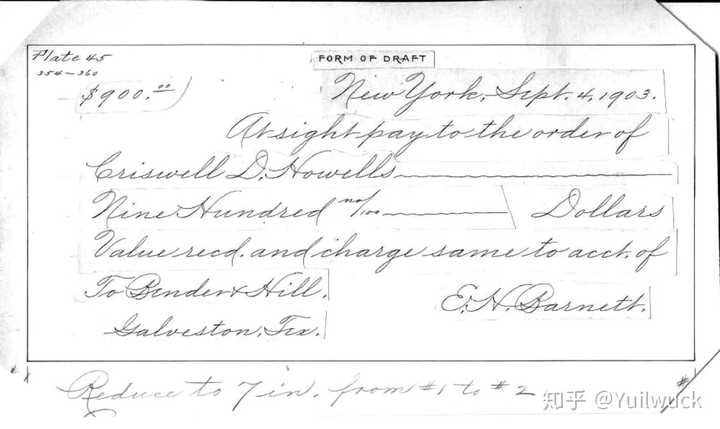 Plate 45
354-360
FORM OF DRAFT
$900.00
New York, Sept. 4, 1903.
At sight pay to the order of
Criswell D. Howells
Nine Hundred no/100 Dollars
Value recd. and charge same to acct. of
To Bender & Hill, E. H. Barnett.
Galveston, Tex.
Reduce to 7 in. from #1 to #2
# #
知乎 @Yuilwuck